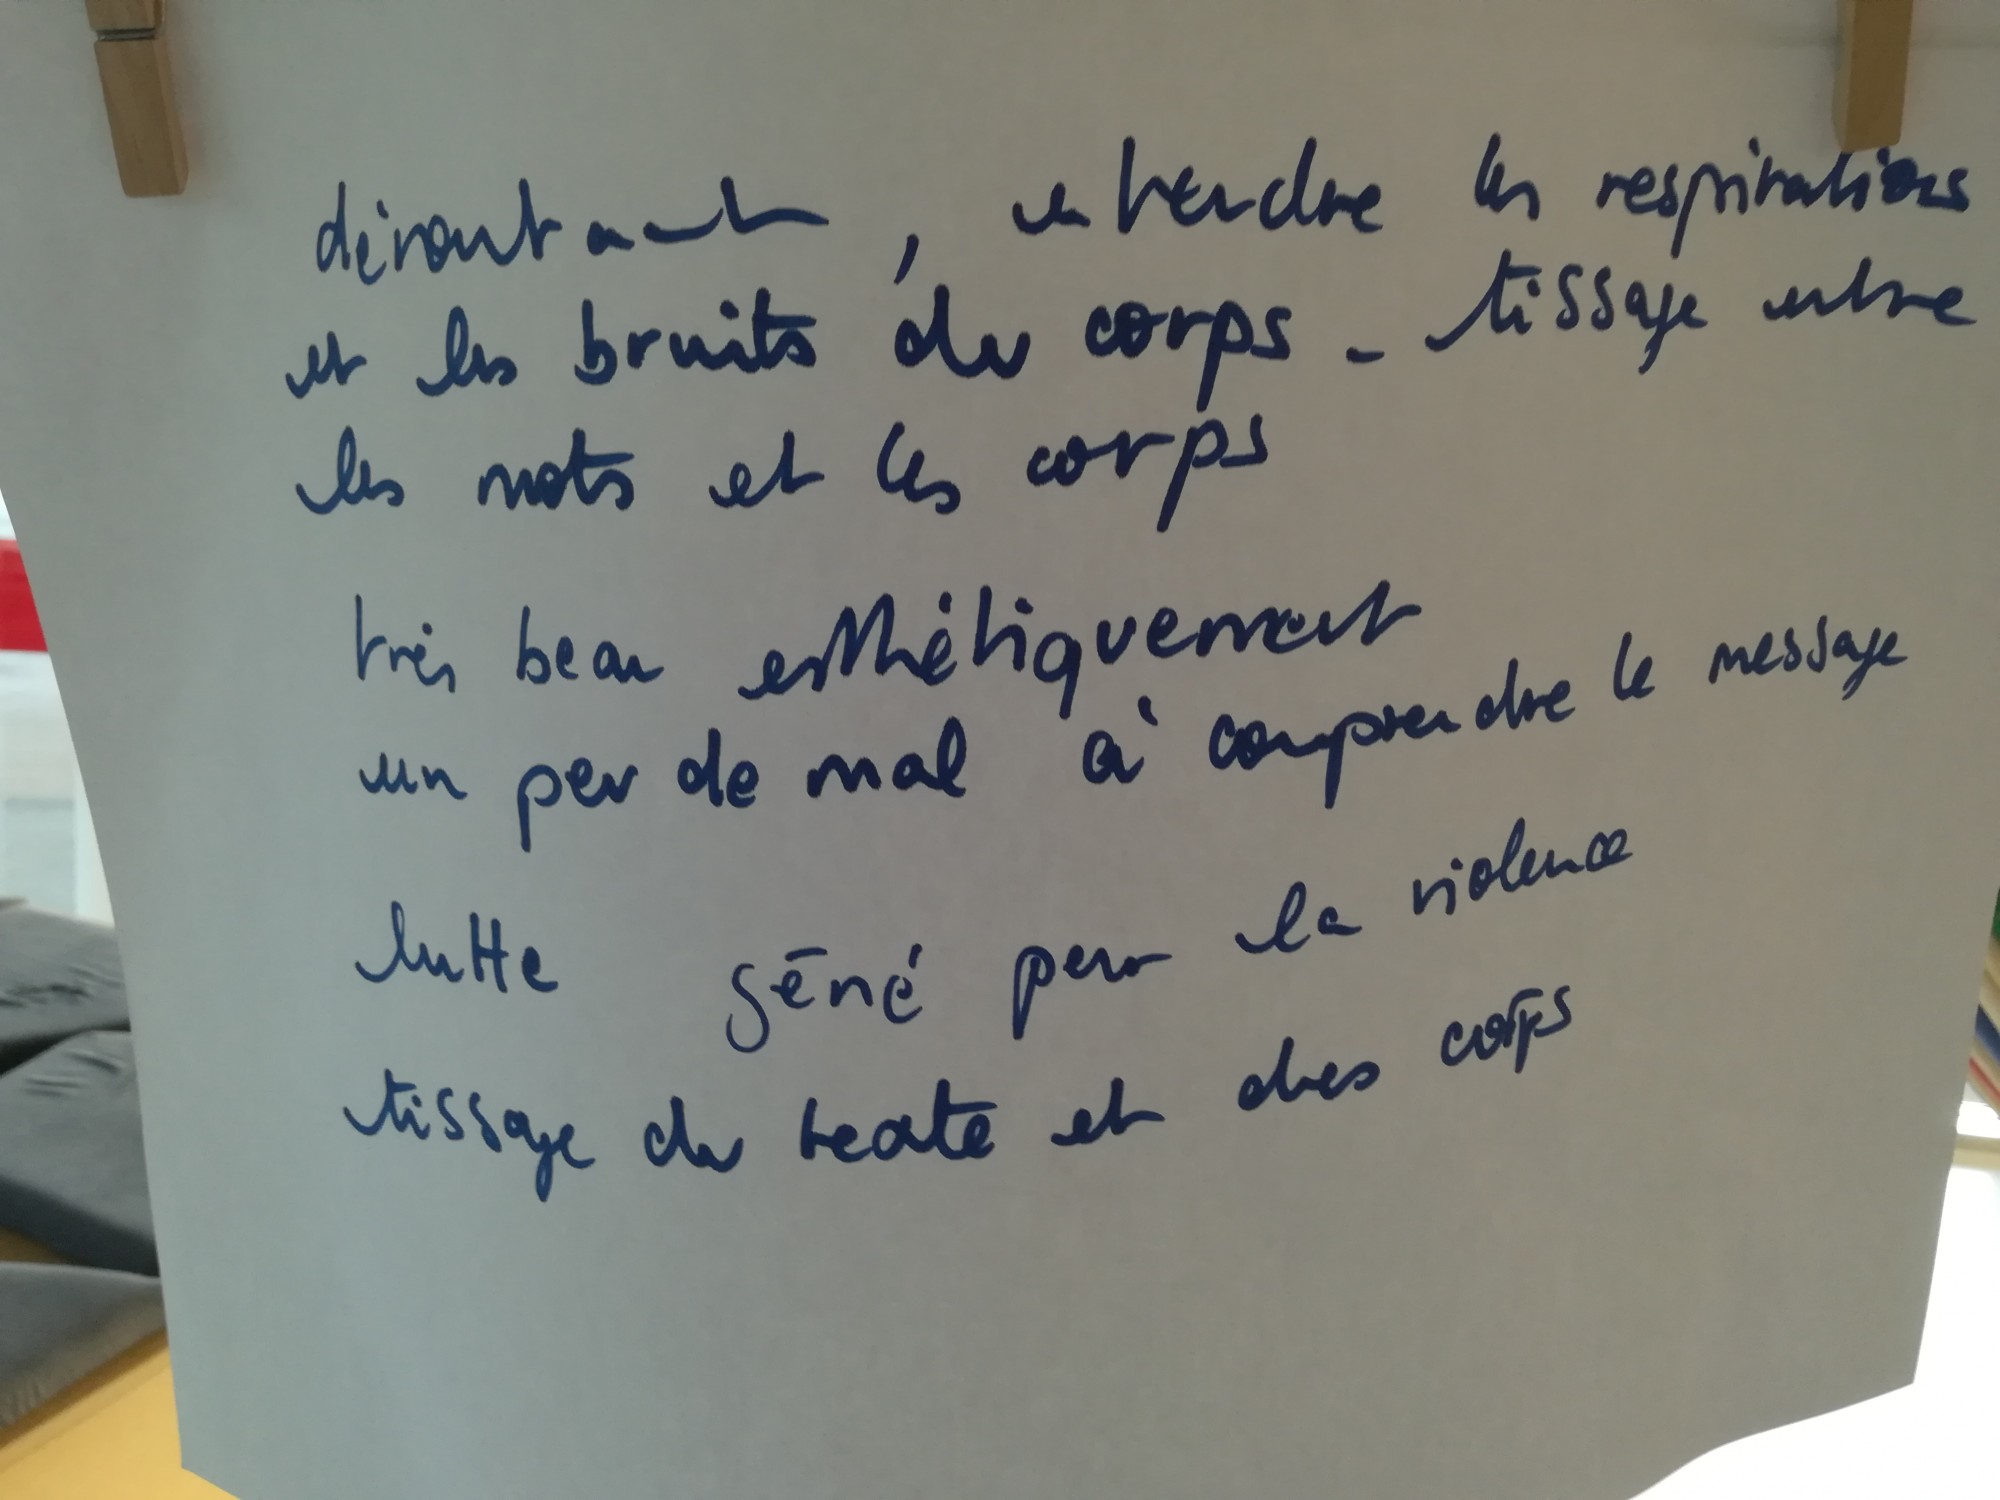 déroutant, entendre les respirations
et les bruits du corps - tissage entre
les mots et les corps
très beau esthétiquement
un peu de mal à comprendre le message
lutte gêné par la violence
tissage du texte et des corps